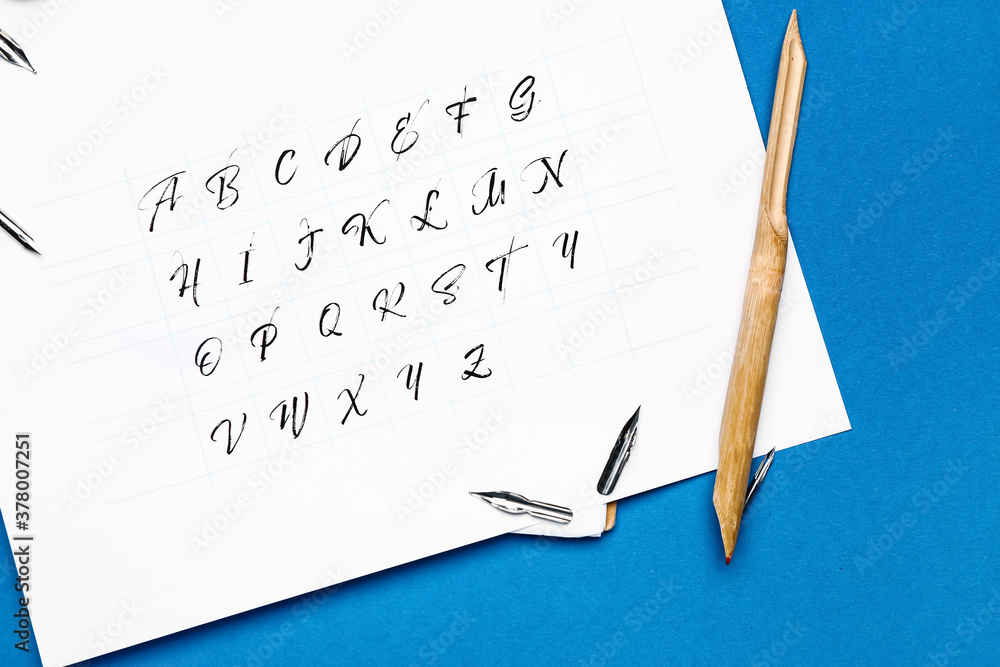 A B C D E F G
H I J K L M N
O P Q R S T Y
V W X Y Z
Adobe Stock | #378007251